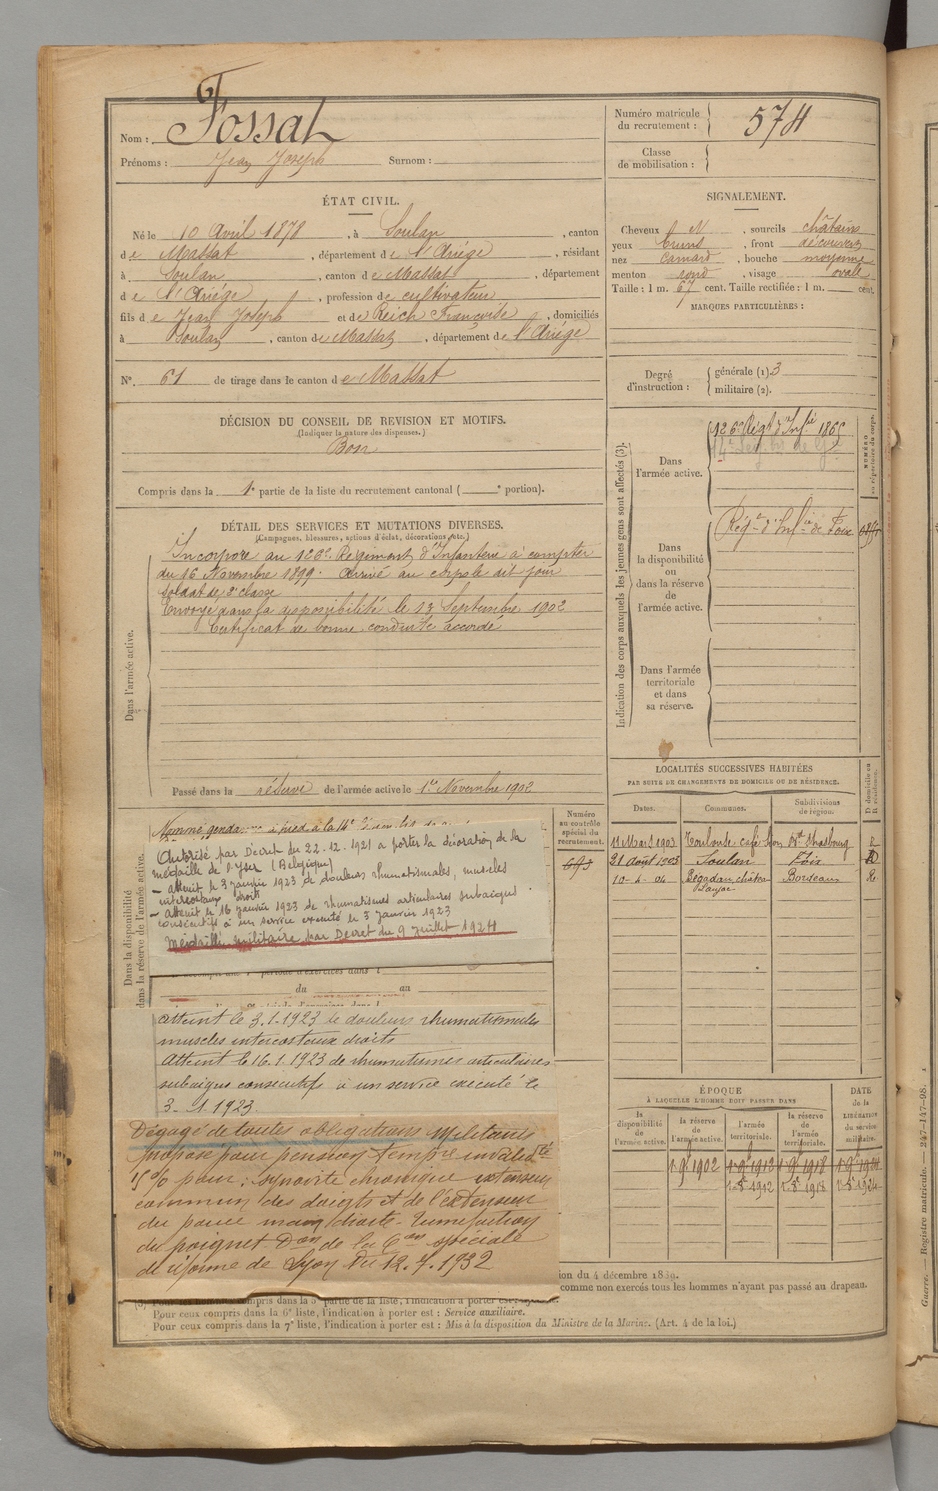 Nom : Fossat
Prénoms : Jean Joseph Surnom :
Numéro matricule du recrutement : 574
Classe de mobilisation :
ÉTAT CIVIL.
Né le 10 Avril 1878, à Soulan, canton
de Massat, département de l'Ariége, résidant
à Soulan, canton de Massat, département
de l'Ariége, profession de cultivateur
fils de Jean Joseph et de Reich Françoise, domiciliés
à Soulan, canton de Massat, département de l'Ariége
N°. 61 de tirage dans le canton de Massat
SIGNALEMENT.
Cheveux N, sourcils châtains
yeux bruns, front découvert
nez camard, bouche moyenne
menton rond, visage ovale
Taille : 1 m. 67 cent. Taille rectifiée : 1 m. cent.
MARQUES PARTICULIÈRES :
Degré d'instruction : générale (1) 3
militaire (2).
DÉCISION DU CONSEIL DE REVISION ET MOTIFS.
(Indiquer la nature des dispenses.)
Bon
Compris dans la 1e partie de la liste du recrutement cantonal ( e portion).
DÉTAIL DES SERVICES ET MUTATIONS DIVERSES.
(Campagnes, blessures, actions d'éclat, décorations, etc.)
Dans l'armée active.
Incorporé au 126e Régiment d'Infanterie à compter
du 16 Novembre 1899. Arrivé au corps le dit jour
soldat de 2e classe
Envoyé dans la disponibilité le 13 Septembre 1902
Certificat de bonne conduite accordé
Passé dans la réserve de l'armée active le 1er Novembre 1902
Indication des corps auxquels les jeunes gens sont affectés (3).
NUMÉRO au répertoire du corps.
Dans l'armée active.
126e Régt d'Infie
Dans la disponibilité ou dans la réserve de l'armée active.
Régt d'Infie de Foix
Dans l'armée territoriale et dans sa réserve.
LOCALITÉS SUCCESSIVES HABITÉES
PAR SUITE DE CHANGEMENTS DE DOMICILE OU DE RÉSIDENCE.
Dates. Communes. Subdivisions de région. D domicile ou R résidence.
11 Mars 1903 Toulouse R
21 Août 1903 Soulan Foix D
10-4-04 Bégadan Bordeaux R
Dans la disponibilité
dans la réserve de l'armée active.
Numéro au contrôle spécial du recrutement.
Nommé gendarme à pied à la 14e
Autorisé par Décret du 22-12-1921 à porter la décoration de la
médaille de l'Yser (Belgique)
- Atteint le 3 janvier 1923 de douleurs rhumatismales, muscles
intercostaux droits
- Atteint le 16 janvier 1923 de rhumatismes articulaires subaigus
consécutifs à un service exécuté le 3 janvier 1923
Médaille militaire par Décret du 9 juillet 1924
du au
Atteint le 3.1.1923 de douleurs rhumatismales
muscles intercostaux droits
Atteint le 16.1.1923 de rhumatismes articulaires
subaigus consécutifs à un service exécuté le
3.1.1923.
Dégagé de toutes obligations Militaires
proposé pour pension tempre invalidité
15 % pour : synovite chronique extenseur
commun des doigts et de l'extenseur
du pouce main droite - tuméfaction
du poignet Don de la Con spéciale
de réforme de Lyon du 12.7.1932
ÉPOQUE
À LAQUELLE L'HOMME DOIT PASSER DANS
la disponibilité de l'armée active. la réserve de l'armée active. l'armée territoriale. la réserve de l'armée territoriale.
DATE de la LIBÉRATION du service militaire.
1 9bre 1902 1 9bre 1912 1 9bre 1918 1 9bre 1924
1-8bre 1912 1-8bre 1918 1-8bre 1924
ion du 4 décembre 1889.
comme non exercés tous les hommes n'ayant pas passé au drapeau.
Pour ceux compris dans la 6e liste, l'indication à porter est : Service auxiliaire.
Pour ceux compris dans la 7e liste, l'indication à porter est : Mis à la disposition du Ministre de la Marine. (Art. 4 de la loi.)
Guerre. — Registre matricule. — 247-147-98.